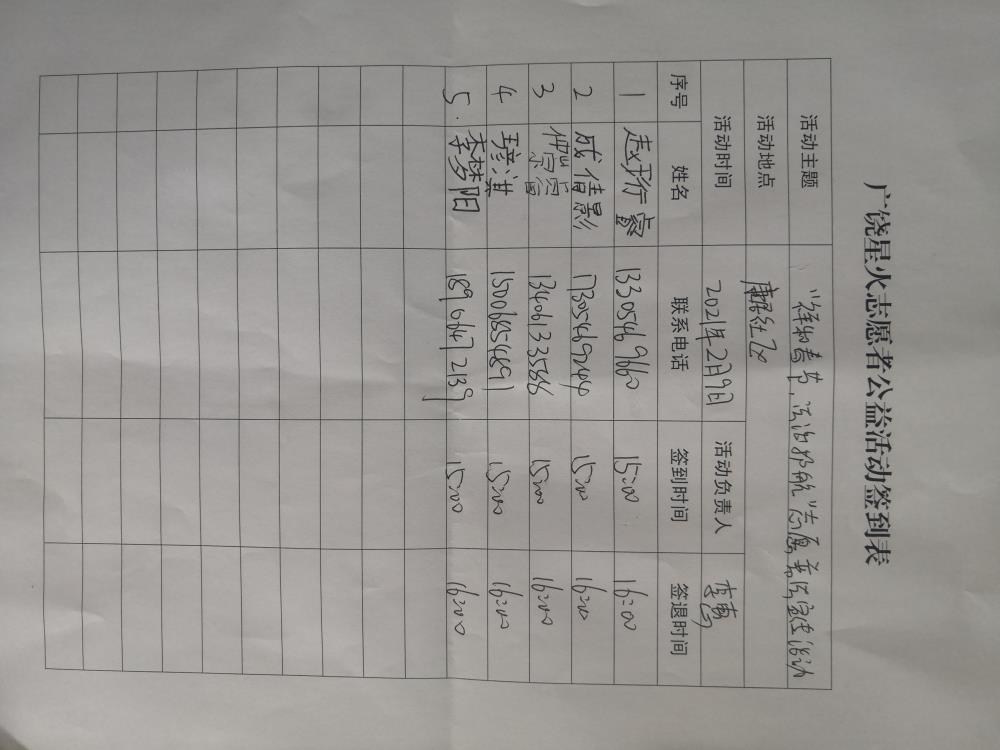 广饶星火志愿者公益活动签到表
活动主题 "祥和春节,法治护航"志愿普法宣传活动
活动地点 康居社区
活动时间 2021年2月9日 活动负责人 李
序号 姓名 联系电话 签到时间 签退时间
1 赵珩睿 13305469660 15:00 16:00
2 成倩影 17305469244 15:00 16:00
3 宗 13406133586 15:00 16:00
4 淇 15006854891 15:00 16:00
5. 李梦阳 18906472139 15:00 16:00